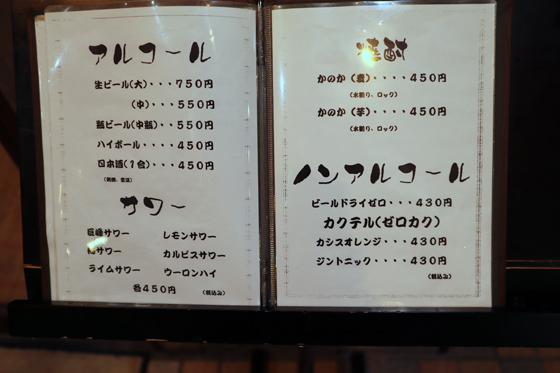 アルコール
生ビール(大)・・・750円
(中)・・・550円
瓶ビール(中瓶)・・550円
ハイボール・・・・450円
日本酒(1合)・・・450円
サワー
巨峰サワー レモンサワー
サワー カルピスサワー
ライムサワー ウーロンハイ
各450円 (税込み)
焼酎
かのか(麦)・・・・450円
(水割り、ロック)
かのか(芋)・・・・450円
(水割り、ロック)
ノンアルコール
ビールドライゼロ・・・430円
カクテル(ゼロカク)
カシスオレンジ・・・430円
ジントニック・・・・430円
(税込み)